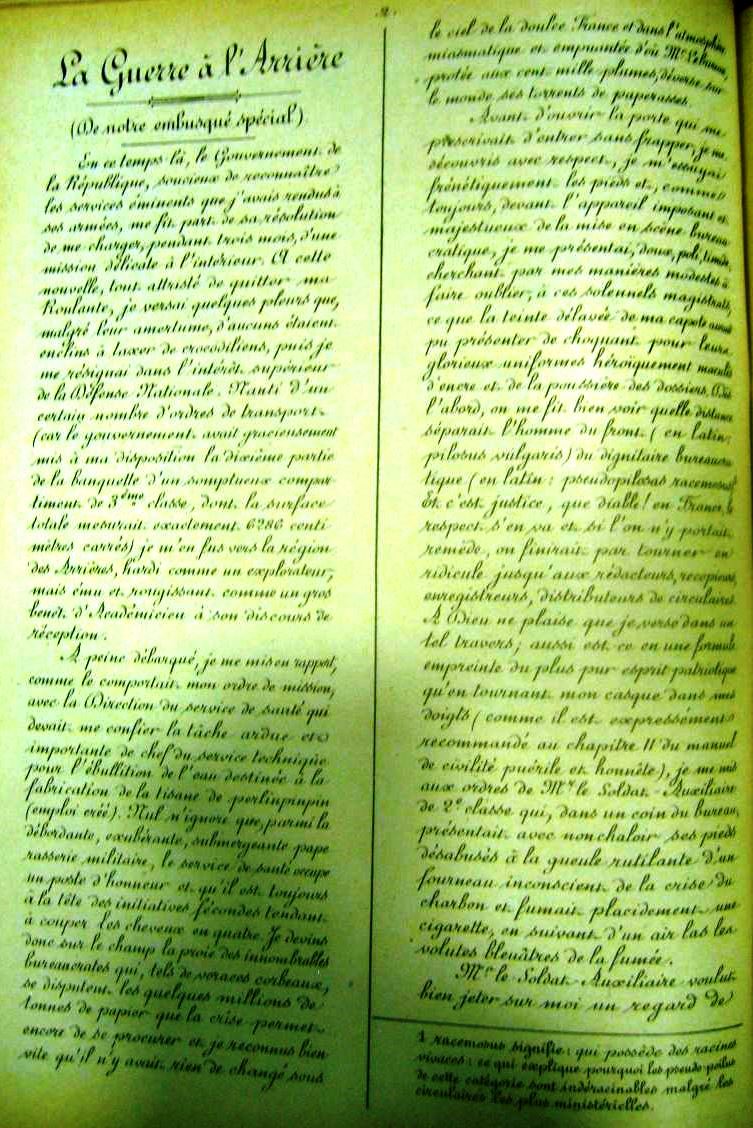 2.
La Guerre à l'Arrière
(De notre embusqué spécial)
En ce temps là, le Gouvernement de
la République, soucieux de reconnaître
les services éminents que j'avais rendus à
ses armées, me fit part de sa résolution
de me charger, pendant trois mois, d'une
mission délicate à l'intérieur. A cette
nouvelle, tout attristé de quitter ma
Roulante, je versai quelques pleurs que,
malgré leur amertume, d'aucuns étaient
enclins à taxer de crocodiliens, puis je
me résignai dans l'intérêt supérieur
de la Défense Nationale. Nanti d'un
certain nombre d'ordres de transport
(car le gouvernement avait gracieusement
mis à ma disposition la dixième partie
de la banquette d'un somptueux compar-
timent de 3ème classe, dont la surface
totale mesurait exactement 6286 centi
mètres carrés) je m'en fus vers la région
des Arrières, hardi comme un explorateur,
mais ému et rougissant comme un gros
benêt d'Académicien à son discours de
réception.
A peine débarqué, je me mis en rapport,
comme le comportait mon ordre de mission,
avec la Direction du service de santé qui
devait me confier la tâche ardue et
importante de chef du service technique
pour l'ébullition de l'eau destinée à la
fabrication de la tisane de perlinpinpin
(emploi créé). Nul n'ignore que, parmi la
débordante, exubérante, submergeante pape
rasserie militaire, le service de santé occupe
un poste d'honneur et qu'il est toujours
à la tête des initiatives fécondes tendant
à couper les cheveux en quatre. Je devins
donc sur le champ la proie des innombrables
bureaucrates qui, tels de voraces corbeaux,
se disputent les quelques millions de
tonnes de papier que la crise permet
encore de se procurer et je reconnus bien
vite qu'il n'y avait rien de changé sous
le ciel de la doulce France et dans l'atmosphère
miasmatique et empuantée d'où Mr
protée aux cent mille plumes, déverse sur
le monde ses torrents de paperasses.
Avant d'ouvrir la porte qui me
prescrivait d'entrer sans frapper, je me
découvris avec respect, je m'essuyai
frénétiquement les pieds et, comme
toujours, devant l'appareil imposant et
majestueux de la mise en scène bureau
cratique, je me présentai, doux, poli, timide,
cherchant par mes manières modestes à
faire oublier, à ces solennels magistrats,
ce que la teinte délavée de ma capote aurait
pu présenter de choquant pour leurs
glorieux uniformes héroïquement maculés
d'encre et de la poussière des dossiers. Dès
l'abord, on me fit bien voir quelle distance
séparait l'homme du front (en latin:
pilosus vulgaris) du dignitaire bureaucra
tique (en latin: pseudopilosas racemosus)1
Et c'est justice, que diable! en France, le
respect s'en va et si l'on n'y portait
remède, on finirait par tourner en
ridicule jusqu'aux rédacteurs, recopieurs,
enregistreurs, distributeurs de circulaires.
A Dieu ne plaise que je verse dans un
tel travers; aussi est ce en une formule
empreinte du plus pur esprit patriotique
qu'en tournant mon casque dans mes
doigts (comme il est expressément
recommandé au chapitre II du manuel
de civilité puérile et honnête), je me mis
aux ordres de Mr le Soldat-Auxiliaire
de 2e classe qui, dans un coin du bureau,
présentait avec nonchaloir ses pieds
désabusés à la gueule rutilante d'un
fourneau inconscient de la crise du
charbon et fumait placidement une
cigarette, en suivant d'un air las les
volutes bleuâtres de la fumée.
Mr le Soldat-Auxiliaire voulut
bien jeter sur moi un regard de
1 racemosus signifie: qui possède des racines
vivaces: ce qui explique pourquoi les pseudo poilus
de cette catégorie sont indéracinables malgré les
circulaires les plus ministérielles.